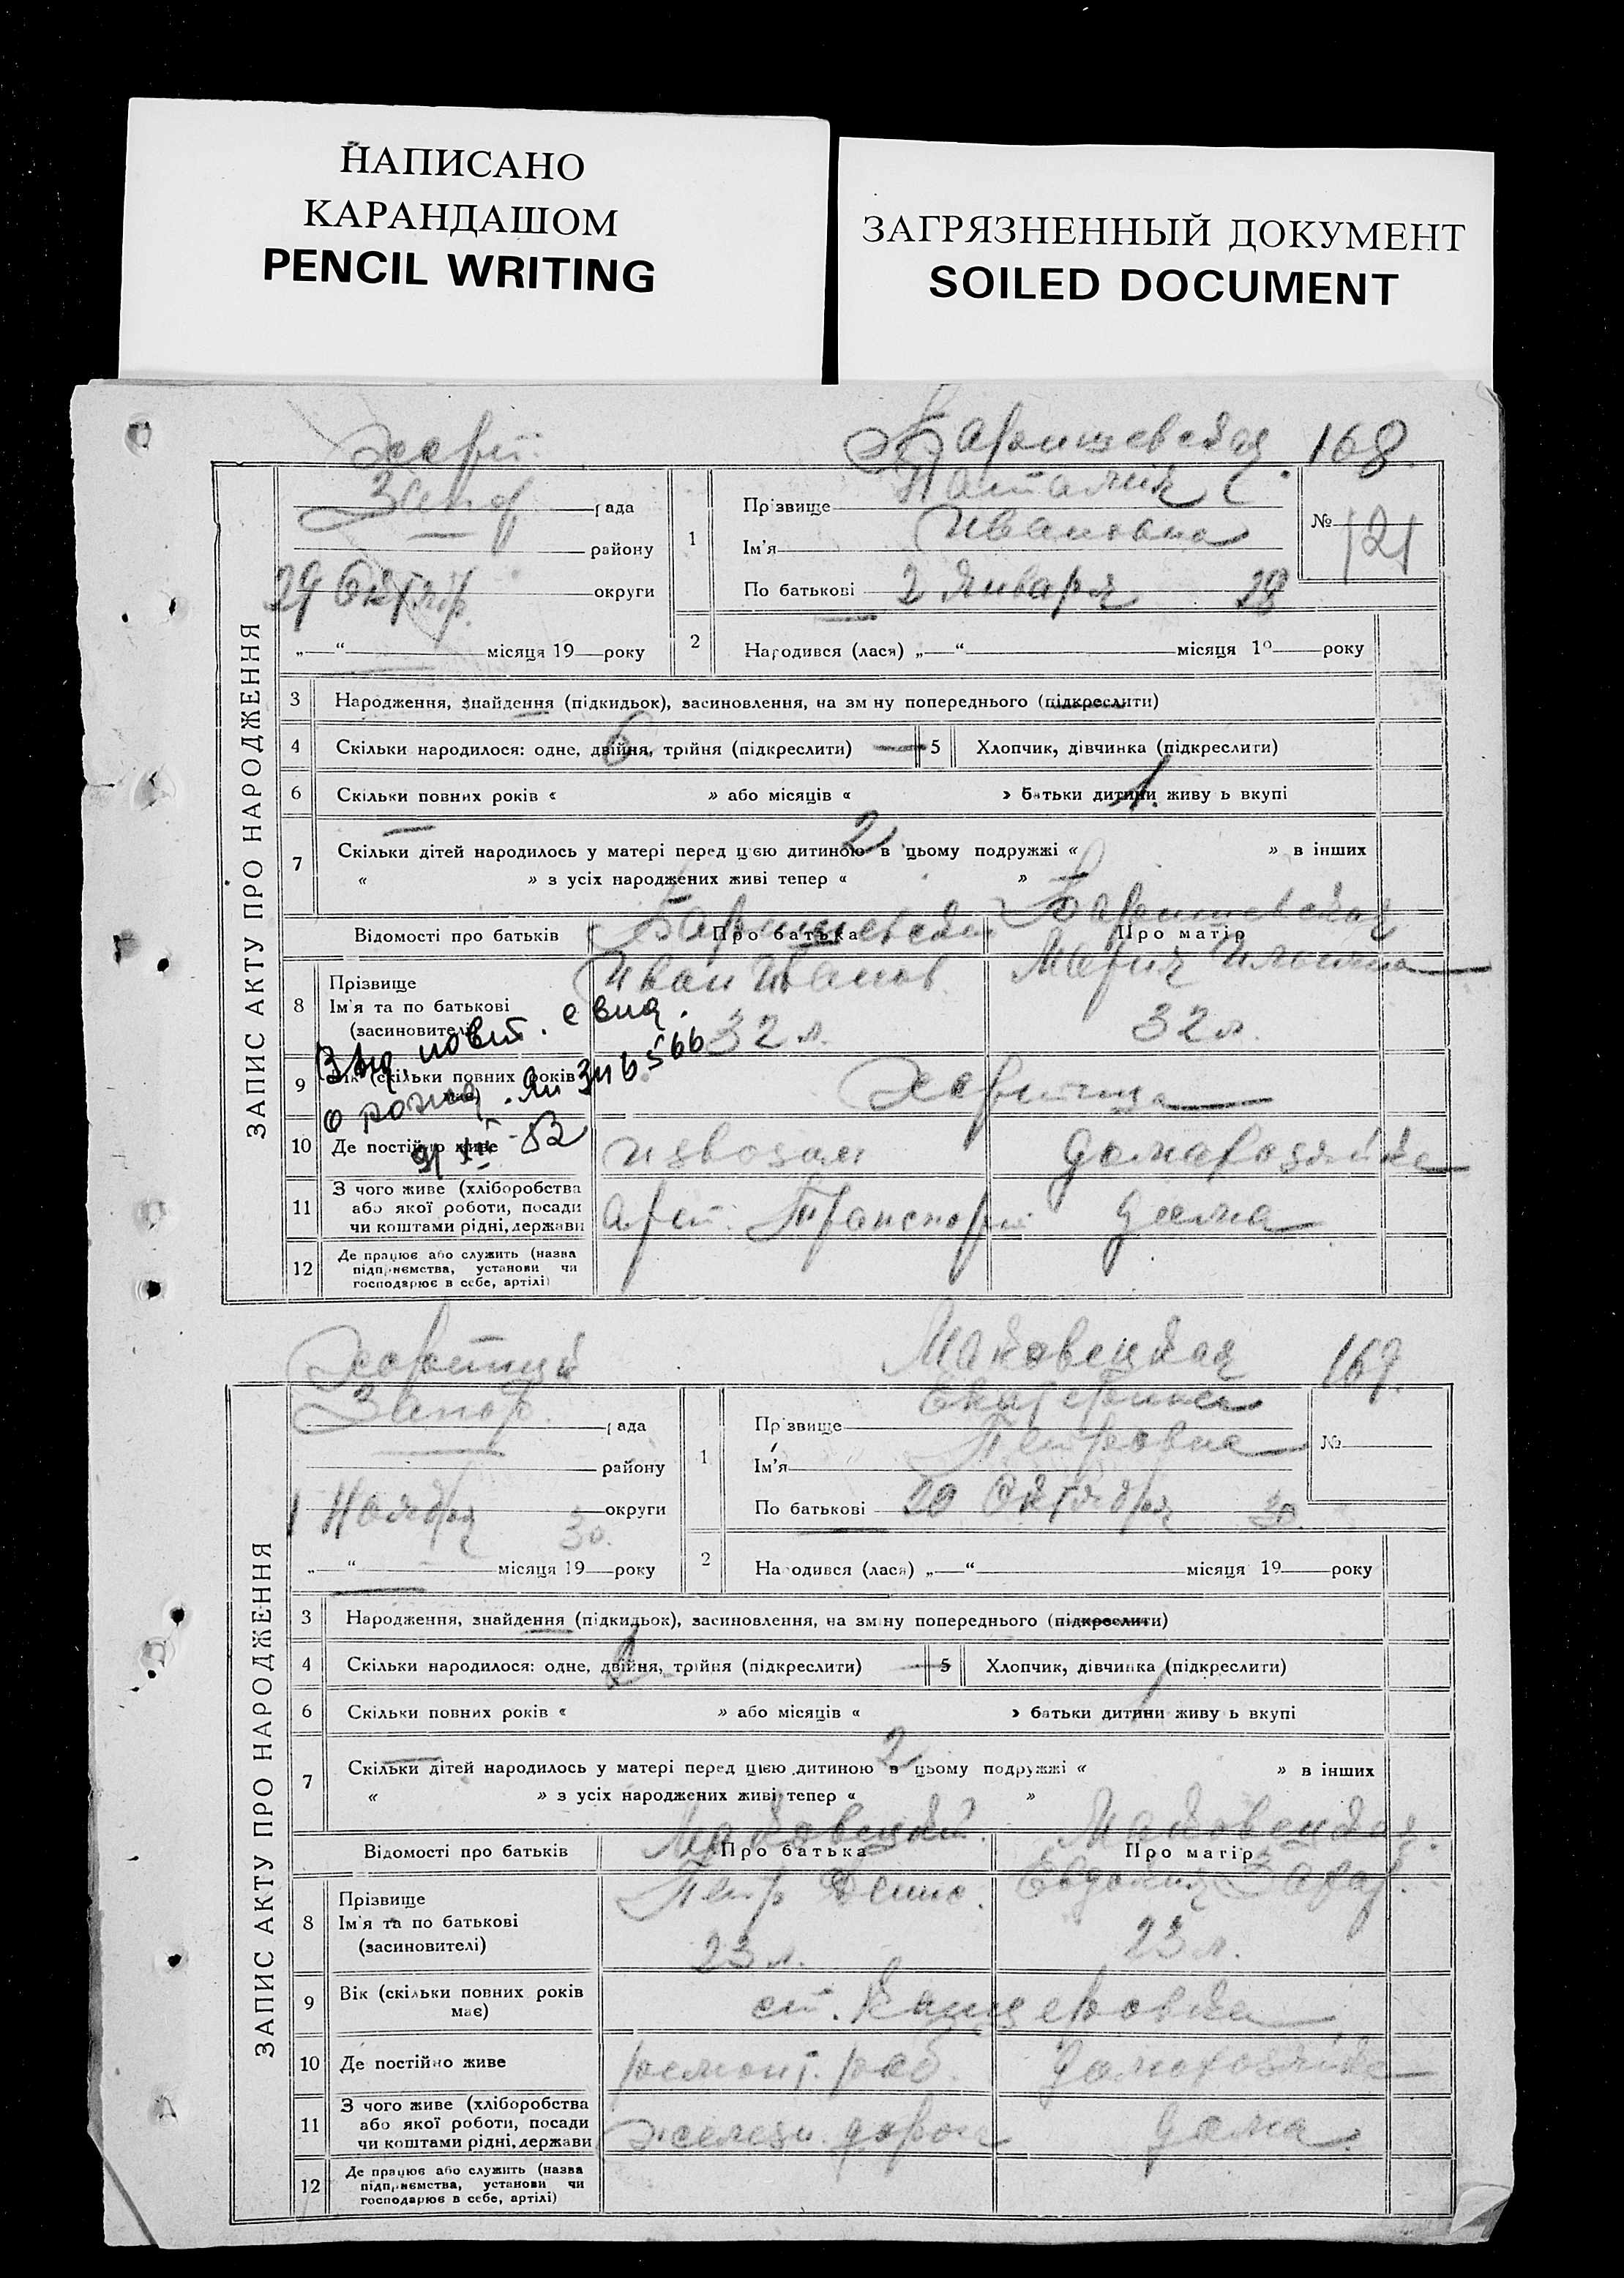 НАПИСАНО
КАРАНДАШОМ
PENCIL WRITING
ЗАГРЯЗНЕННЫЙ ДОКУМЕНТ
SOILED DOCUMENT
168
ЗАПИС АКТУ ПРО НАРОДЖЕННЯ
Запор
рада
району
29 Октябр.
округи
„—“ місяця 19 року
1
Прізвище
Наталия
Ім'я
Ивановна
По батькові
2 Января 28
№ 121
2
Народився (лася) „—“ місяця 19 року
3 Народження, знайдення (підкидьок), засиновлення, на зміну попереднього (підкреслити)
4 Скільки народилося: одне, двійня, трійня (підкреслити)
6
5 Хлопчик, дівчинка (підкреслити)
6 Скільки повних років « » або місяців « » батьки дитини живуть вкупі
1.
7 Скільки дітей народилось у матері перед цією дитиною в цьому подружжі « » в інших
2
« » з усіх народжених живі тепер « »
Відомості про батьків
Про батька
Про матір
Иван Иванов.
Мария
8 Прізвище
Ім'я та по батькові
(засновителі)
32 л.
32 л.
9 Вік (скільки повних років має)
Хортица
10 Де постійно живе
извозом
домахозяйка
11 З чого живе (хліборобства
або якої роботи, посади
чи коштами рідні, держави
арт. Транспорт
дома
12 Де працює або служить (назва
підприємства, установи чи
господарює в себе, артілі)
Маковецкая
169.
ЗАПИС АКТУ ПРО НАРОДЖЕННЯ
Запор.
рада
району
1 Ноября 30.
округи
„—“ місяця 19 року
1
Прізвище
Екатерина
Ім'я
Петровна
По батькові
20 Октября 30.
№
2
Народився (лася) „—“ місяця 19 року
3 Народження, знайдення (підкидьок), засиновлення, на зміну попереднього (підкреслити)
4 Скільки народилося: одне, двійня, трійня (підкреслити)
5 Хлопчик, дівчинка (підкреслити)
6 Скільки повних років « » або місяців « » батьки дитини живуть вкупі
1
7 Скільки дітей народилось у матері перед цією дитиною в цьому подружжі « » в інших
2
« » з усіх народжених живі тепер « »
Маковецкий.
Маковецкая.
Відомості про батьків
Про батька
Про матір
Петр Денис.
Евдокия
8 Прізвище
Ім'я та по батькові
(засиновителі)
23 л.
23 л.
9 Вік (скільки повних років
має)
10 Де постійно живе
ремонт. раб.
домохозяйка
11 З чого живе (хліборобства
або якої роботи, посади
чи коштами рідні, держави
железн. дорога
дома.
12 Де працює або служить (назва
підприємства, установи чи
господарює в себе, артілі)